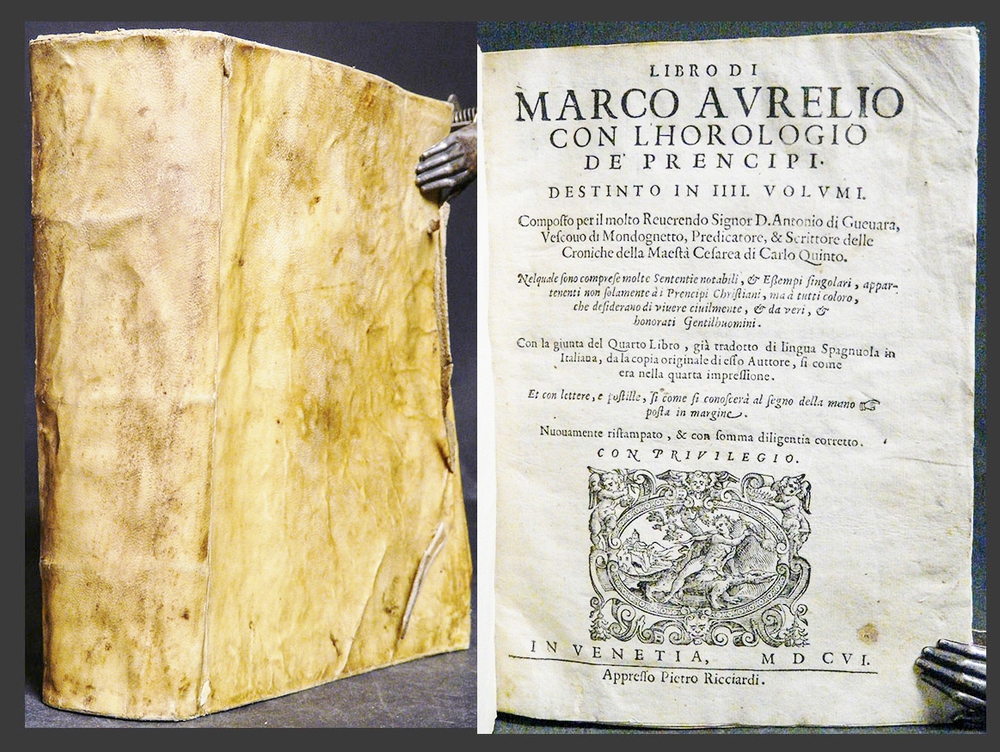 LIBRO DI
MARCO AVRELIO
CON L'HOROLOGIO
DE' PRENCIPI.
DESTINTO IN IIII. VOLVMI.
Compoſto per il molto Reuerendo Signor D. Antonio di Gueuara,
Veſcouo di Mondognetto, Predicatore, & Scrittore delle
Croniche della Maeſtà Ceſarea di Carlo Quinto.
Nel quale ſono compreſe molte Sententie notabili, & Eſſempi ſingolari, appar-
tenenti non ſolamente à i Prencipi Chriſtiani, ma à tutti coloro,
che deſiderano di viuere ciuilmente, & da veri, &
honorati Gentilhuomini.
Con la giunta del Quarto Libro, già tradotto di lingua Spagnuola in
Italiana, da la copia originale di eſſo Auttore, ſi come
era nella quarta impreſſione.
Et con lettere, e poſtille, ſi come ſi conoſcerà al ſegno della mano ☞
poſta in margine.
Nuouamente riſtampato, & con ſomma diligentia corretto.
CON PRIVILEGIO.
IN VENETIA, MDCVI.
Appreſſo Pietro Ricciardi.